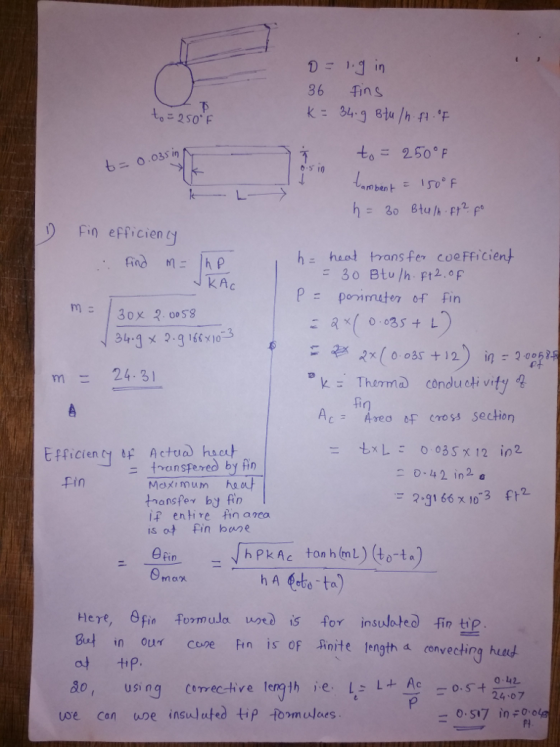 D = 1.9 in
36 fins
K = 34.9 Btu/h ft °F
t₀ = 250°F
t = 0.035 in
L
t₀ = 250°F
tambent = 150°F
h = 30 Btu/h. Ft². F°
1) Fin efficiency
∴ Find m = √(hP / KAc)
m = √(30 x 2.0058 / 34.9 x 2.9166 x 10⁻³)
m = 24.31
h = heat transfer coefficient
= 30 Btu/h. Ft². °F
P = perimeter of fin
= 2 x (0.035 + L)
= 2 x (0.035 + 12) in = 2.0058 ft
K = Thermal conductivity of
fin
Ac = Area of cross section
= t x L = 0.035 x 12 in2
= 0.42 in2
= 2.9166 x 10⁻³ ft²
Efficiency of fin = Actual heat
transfered by fin
/ Maximum heat
transfer by fin
if entire fin area
is at fin base
= θfin / θmax = √(hPKAc) tanh(mL) (t₀ - ta) / hA (t₀ - ta)
Here, θfin formula used is for insulated fin tip.
But in our case fin is of finite length & convecting heat
at tip.
so, using corrective length i.e. Lc = L + Ac/P = 0.5 + 0.42/24.07
we can use insulated tip formulaes. = 0.517 in